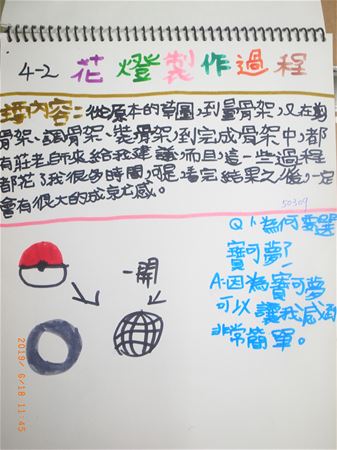 4-2 花燈製作過程
主要內容：從原本的草圖,到量骨架,又在剪
骨架、調骨架、裝骨架,到完成骨架中,都
有莊老師來給我建議,而且,這一些過程
都花了我很多時間,可是看完結果之後,一定
會有很大的成就感。
50309
Q1:為何要選
寶可夢?
A:因為寶可夢
可以讓我感
非常簡單。
一開
2019/ 6/18 11:45